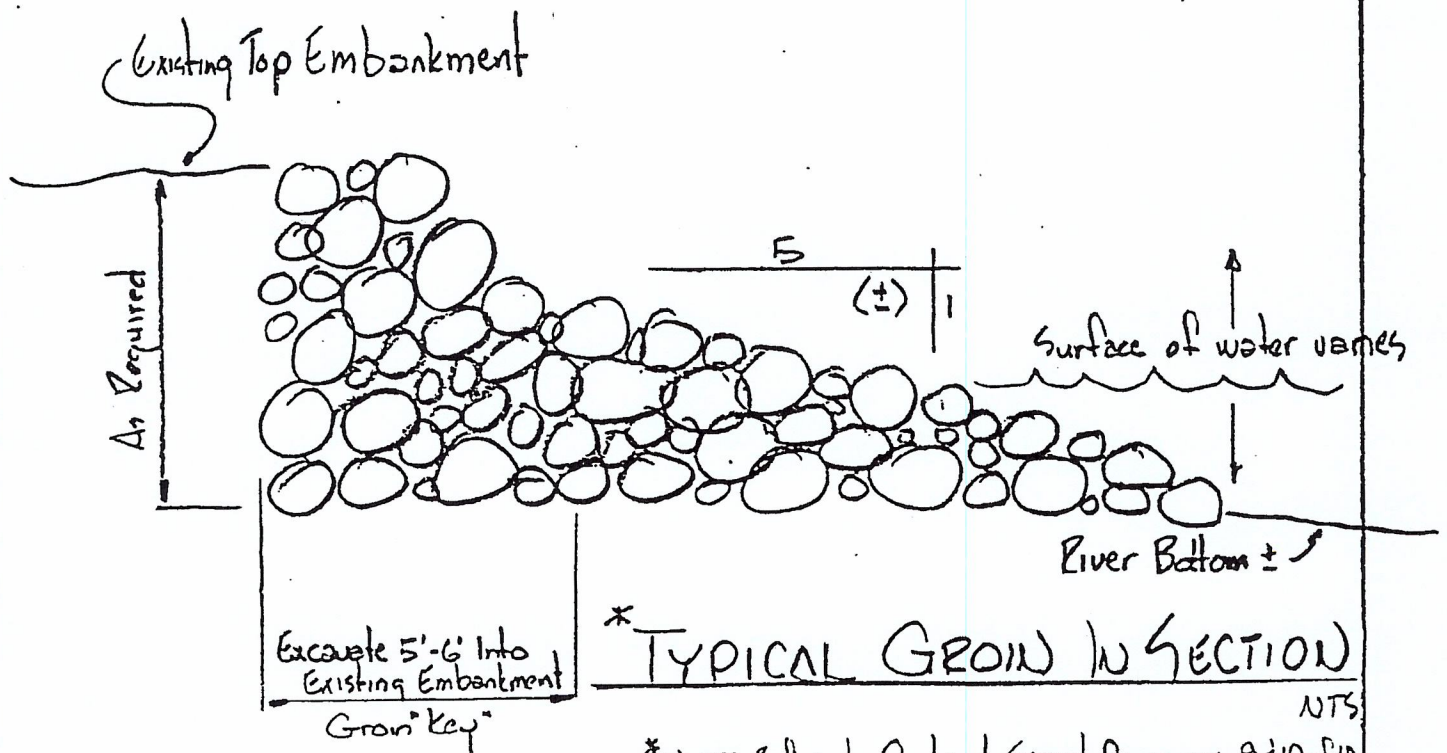 Existing Top Embankment
As Required
5
(±)
1
Surface of water varies
River Bottom ±
Excavate 5'-6' Into
Existing Embankment
Groin "Key"
* TYPICAL GROIN IN SECTION
NTS
*